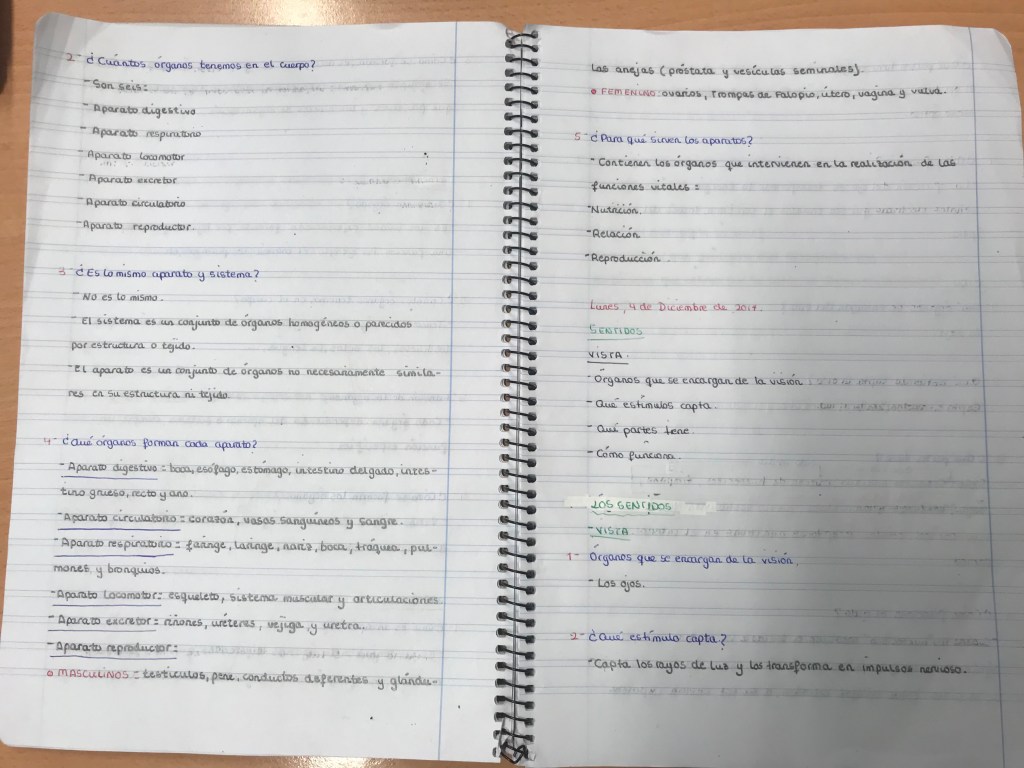 2- ¿Cuántos órganos tenemos en el cuerpo?
- Son seis:
- Aparato digestivo
- Aparato respiratorio
- Aparato locomotor
- Aparato excretor
- Aparato circulatorio
- Aparato reproductor.
3- ¿Es lo mismo aparato y sistema?
- No es lo mismo.
- El sistema es un conjunto de órganos homogéneos o parecidos
por estructura o tejido.
- El aparato es un conjunto de órganos no necesariamente simila-
res en su estructura ni tejido.
4- ¿Qué órganos forman cada aparato?
- Aparato digestivo = boca, esófago, estómago, intestino delgado, intes-
tino grueso, recto y ano.
- Aparato circulatorio = corazón, vasos sanguíneos y sangre.
- Aparato respiratorio = faringe, laringe, nariz, boca, tráquea, pul-
mones, y bronquios.
- Aparato locomotor: esqueleto, sistema muscular y articulaciones
- Aparato excretor = riñones, uréteres, vejiga y uretra.
- Aparato reproductor:
MASCULINOS = testículos, pene, conductos deferentes y glándu-
las anejas (próstata y vesículas seminales).
FEMENINO: ovarios, Trompas de Falopio, útero, vagina y vulva.
5- ¿Para qué sirven los aparatos?
- Contienen los órganos que intervienen en la realización de las
funciones vitales =
- Nutrición.
- Relación
- Reproducción.
Lunes, 4 de Diciembre de 2017.
SENTIDOS
VISTA.
- Órganos que se encargan de la visión
- Qué estímulos capta.
- Qué partes tiene.
- Cómo funciona.
LOS SENTIDOS
- VISTA
1- Órganos que se encargan de la visión.
- Los ojos.
2- ¿Qué estímulo capta?
- Capta los rayos de luz y los transforma en impulsos nervioso.